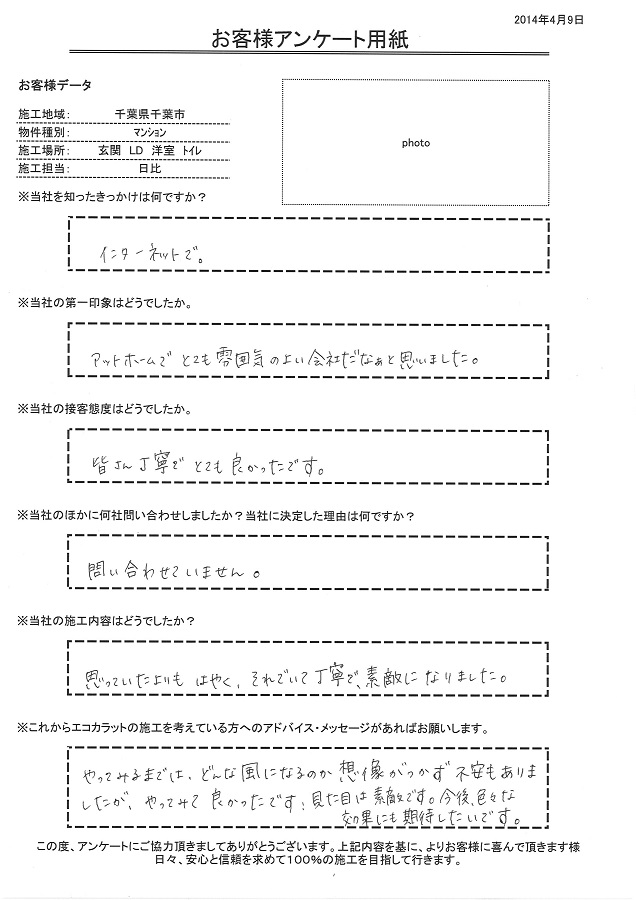 2014年4月9日
お客様アンケート用紙
お客様データ
施工地域： 千葉県千葉市
物件種別： マンション
施工場所： 玄関 LD 洋室 トイレ
施工担当： 日比
photo
※当社を知ったきっかけは何ですか？
インターネットで。
※当社の第一印象はどうでしたか。
アットホームで とても 雰囲気のよい会社だなぁと思いました。
※当社の接客態度はどうでしたか。
皆さん丁寧で とても 良かったです。
※当社のほかに何社問い合わせしましたか？当社に決定した理由は何ですか？
問い合わせていません。
※当社の施工内容はどうでしたか？
思っていたよりも はやく、それでいて丁寧で、素敵になりました。
※これからエコカラットの施工を考えている方へのアドバイス・メッセージがあればお願いします。
やってみるまでは、どんな風になるのか 想像がつかず 不安もありま
したが、やってみて 良かったです！見た目は素敵です。今後、色々な
効果にも期待したいです。
この度、アンケートにご協力頂きましてありがとうございます。上記内容を基に、よりお客様に喜んで頂きます様
日々、安心と信頼を求めて100%の施工を目指して行きます。